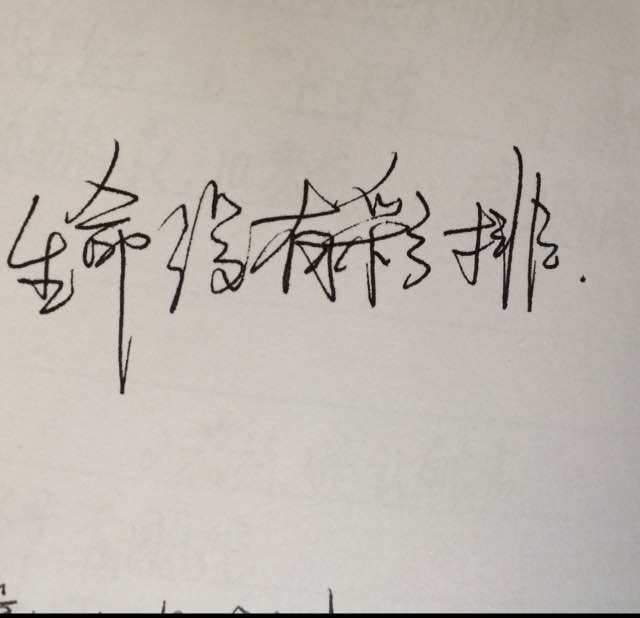 生命没有彩排.